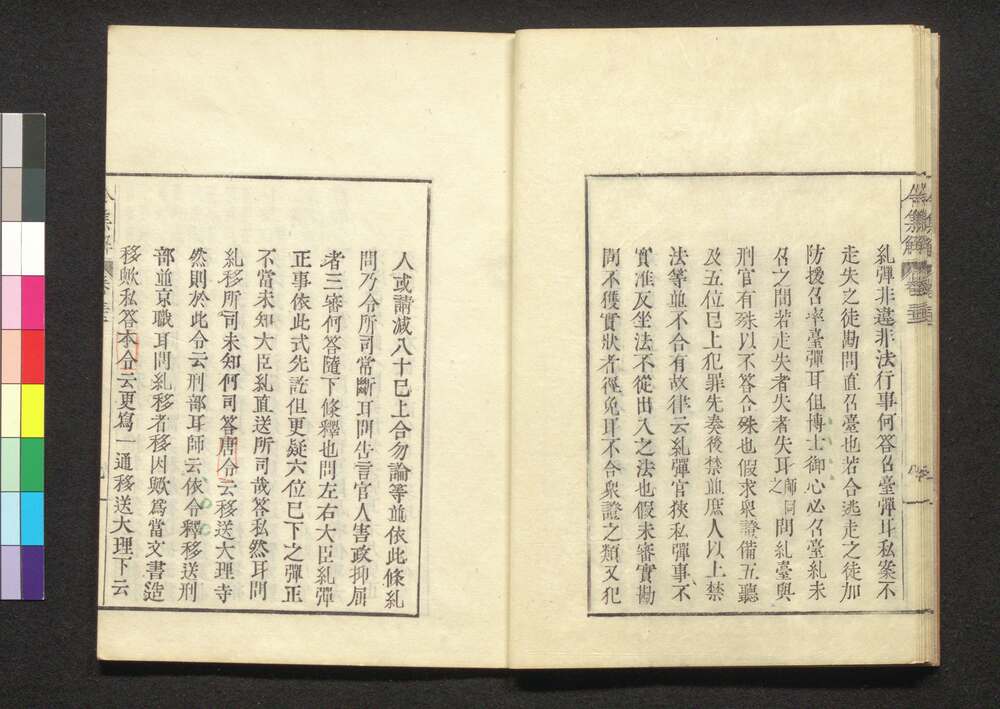 糺彈非違非法行事何答召臺彈耳私案不
走失之徒勘問直召臺也若合逃走之徒加
防援召率臺彈耳但博士御心必召臺糺未
召之間若走失者失者失耳師同之問糺臺與
刑官有殊以不答合殊也假求衆證備五聽
及五位已上犯罪先奏後禁並庶人以上禁
法等並不合有故律云糺彈官挾私彈事不
實准反坐法不從出入之法也假未審實勘
問不獲實狀者徑免耳不合衆證之類又犯
人或請减八十已上合勿論等並依此條糺
問乃令所司常斷耳問告言官人害政抑屈
者三審何答隨下條釋也問左右大臣糺彈
正事依此式先訖但更疑六位已下之彈正
不當未知大臣糺直送所司哉答私然耳問
糺移所司未知何司答唐令云移送大理寺
然則於此令云刑部耳師云依令釋移送刑
部並京職耳問糺移者移因歟爲當文書造
移歟私答本令云更寫一通移送大理下云
令集解